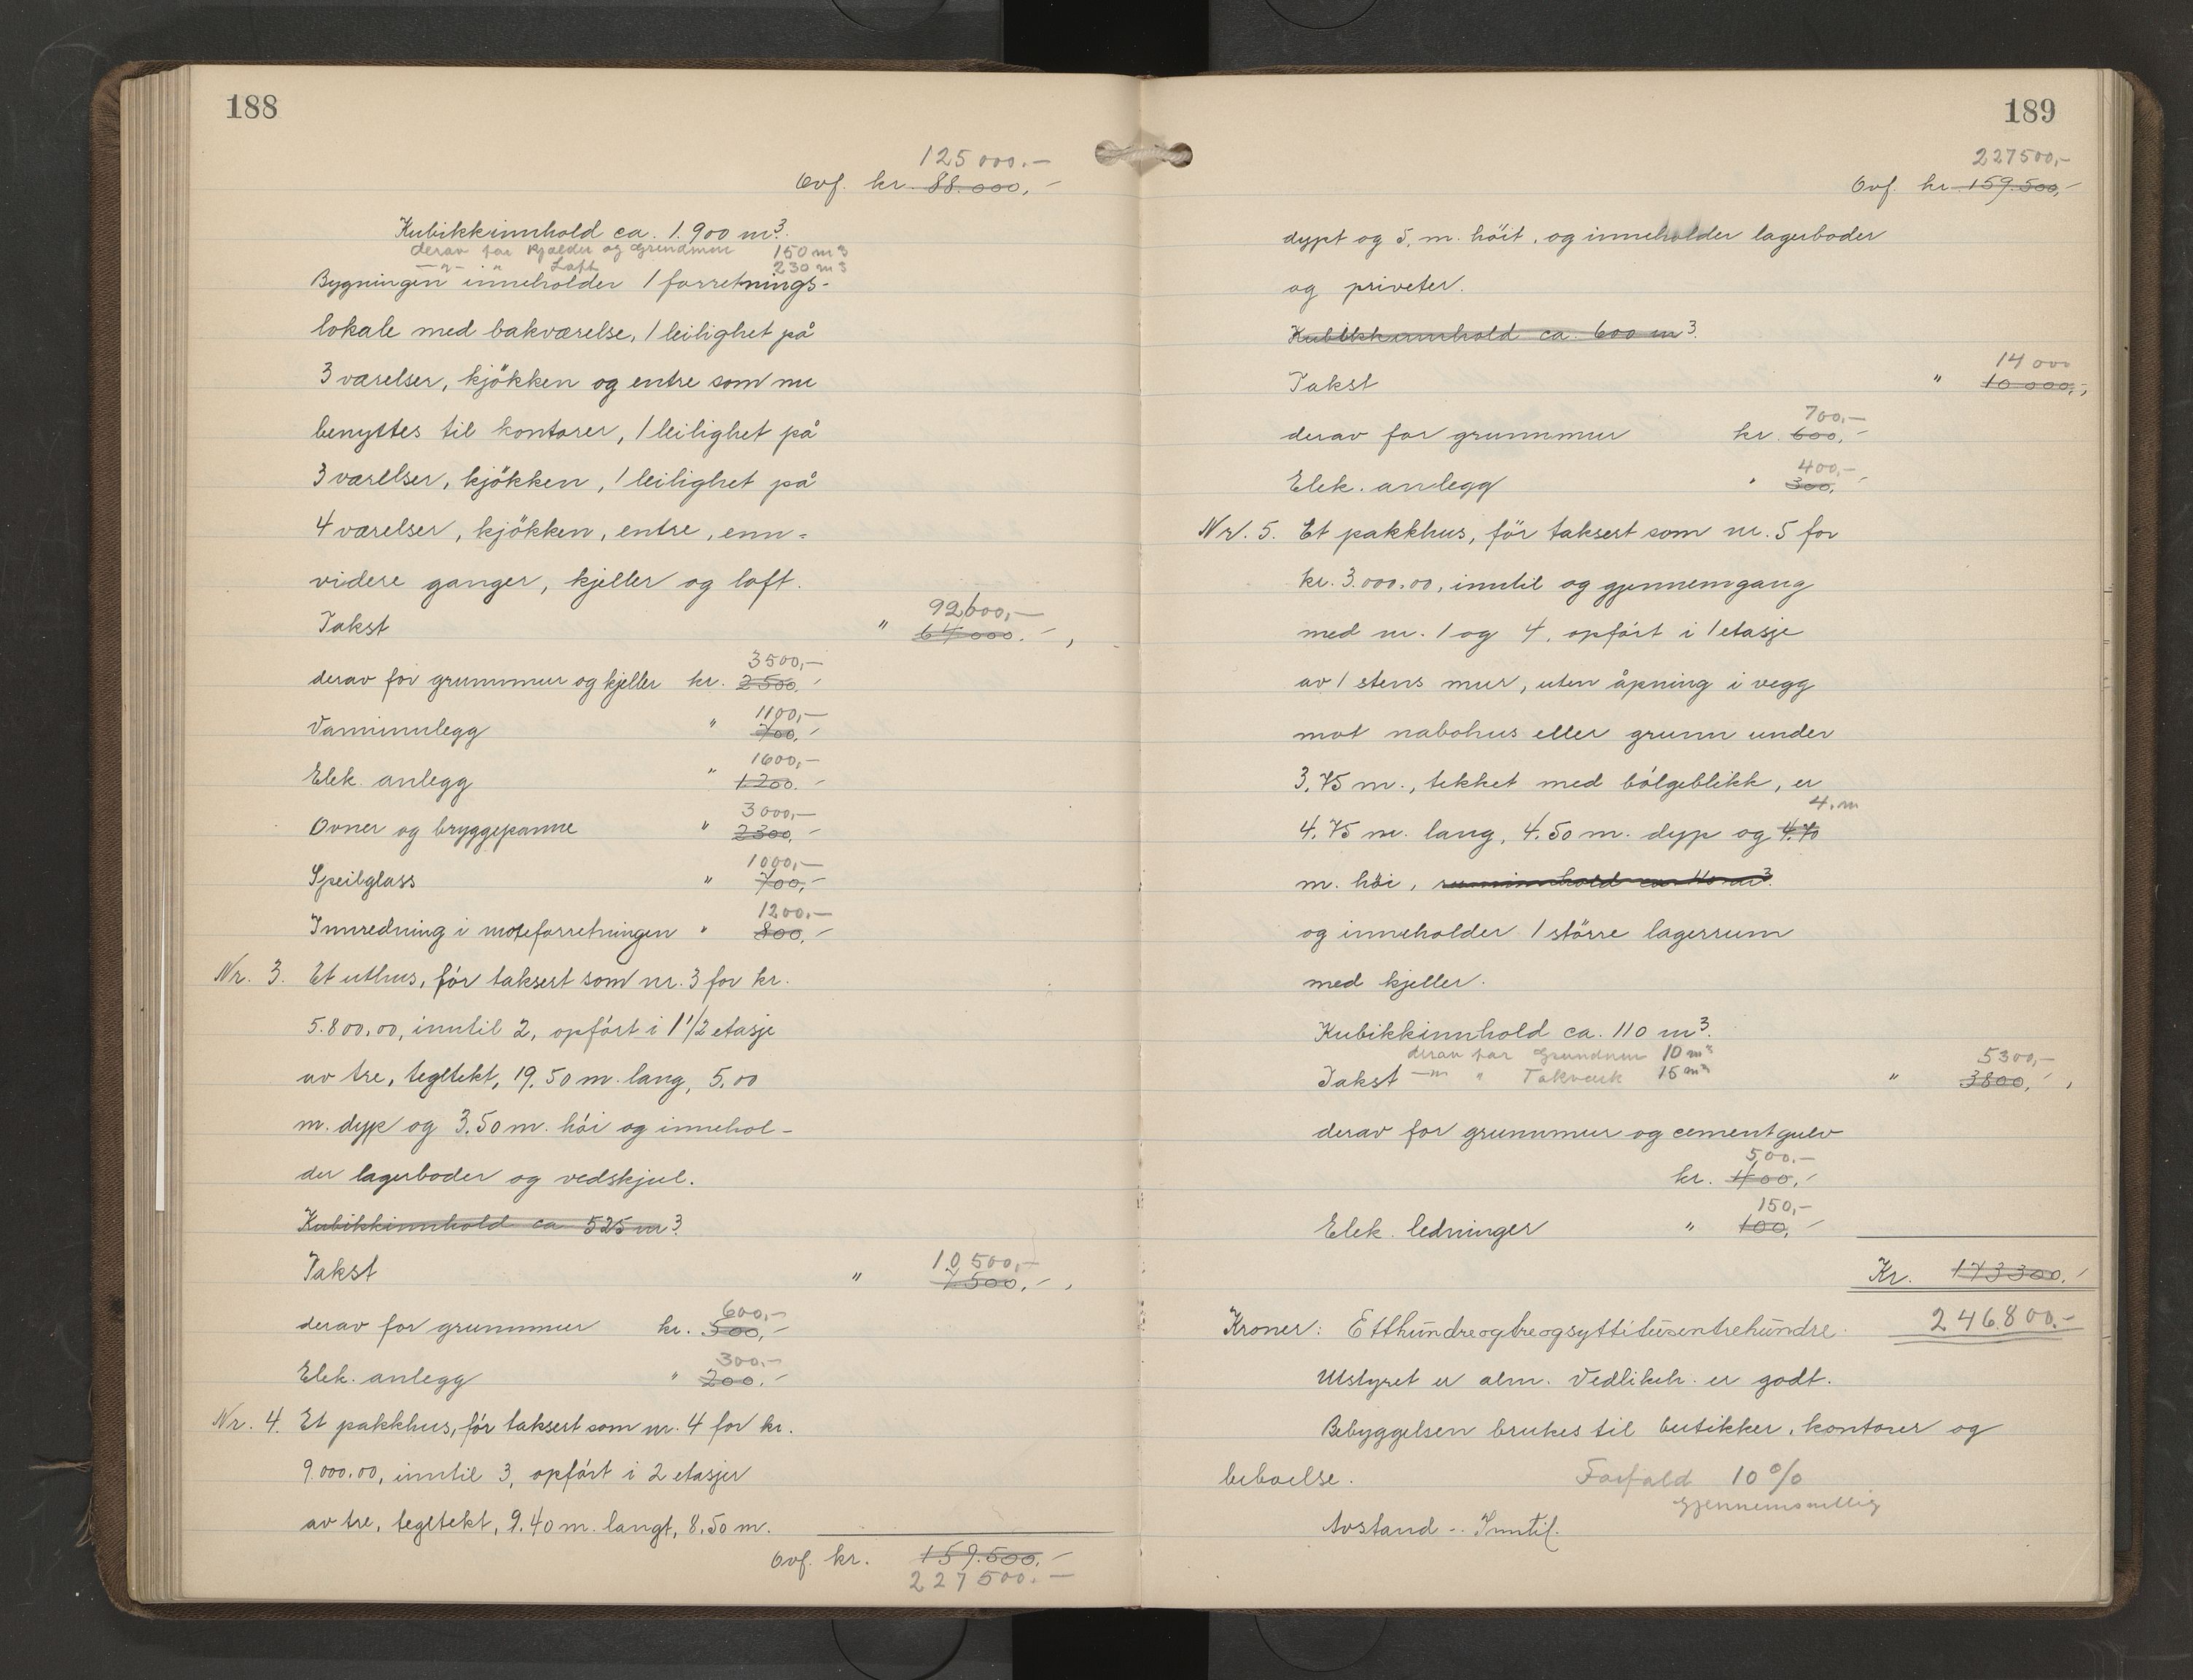 188
125000.-
Ovf. kr. 88.000,-
Kubikkinnhold ca. 1.900 m³.
derav for Kjælder og Grundmur 150 m³
-"- " Loft 230 m³
Bygningen inneholder 1 forretnings-
lokale med bakværelse, 1 leilighet på
3 værelser, kjökken og entre som nu
benyttes til kontorer, 1 leilighet på
3 værelser, kjökken, 1 leilighet på
4 værelser, kjökken, entre, enn-
videre ganger, kjeller og loft.
92000,-
Takst " 64000.-,
3500,-
derav for grunnmur og kjeller kr. 2500.-
1100,-
Vanninnlegg " 700.-
1600,-
Elek. anlegg " 1.200.-
3000,-
Ovner og bryggepanne " 2300,-
1000,-
Speilglass " 700,-
1200.-
Innredning i moteforretningen " 800,-
Nr. 3. Et uthus, för taksert som nr. 3 for kr.
5.800,00, inntil 2, opfört i 1 1/2 etasje
av tre, tegltekt, 19,50 m. lang, 5,00
m. dyp og 3,50 m. höi og innehol-
der lagerboder og vedskjul.
Kubikkinnhold ca 525 m³.
10500,-
Takst " 7500,-,
600,-
derav for grunnmur kr. 500,-
300,-
Elek. anlegg " 200.-
Nr. 4. Et pakkhus, för taksert som nr. 4 for kr.
9.000,00, inntil 3, opfört i 2 etasjer
av tre, tegltekt, 9,40 m. langt, 8,50 m.
Ovf. kr. 159.500,-
227500.-
189
227500,-
Ovf. kr 159.500,-
dypt og 5, m. höit, og inneholder lagerboder
og priveter.
Kubikkinnhold ca. 600 m³.
14000
Takst " 10.000,-,
700,-
derav for grunnmur kr. 600,-
400,-
Elek. anlegg " 300,-
Nr. 5. Et pakkhus, för taksert som nr. 5 for
kr. 3.000,00, inntil og gjennemgang
med nr. 1 og 4, opfört i 1 etasje
av 1 stens mur, uten åpning i vegg
mot nabohus eller grunn under
3,75 m., tekket med bölgeblikk, er
4. m
4,75 m. lang, 4,50 m. dyp og 4,70
m. höi, rumminnhold ca 110 m³.
og inneholder 1 större lagerrum
med kjeller.
Kubikkinnhold ca. 110 m³.
derav for Grundmur 10 m³
5300,-
Takst -"- " Takverk 15 m³ " 3800,-,
derav for grunnmur og cementgulv
500.-
kr. 400,-
150,-
Elek. ledninger " 100,-
Kr. 173300.-
Kroner: Etthundreogtreogsyttitusentrehundre. 246.800.-
Utstyret er alm. Vedlikeh. er godt.
Bebyggelsen brukes til butikker, kontorer og
beboelse. Forfald 10%
gjennemsnitlig
Avstand -.. Inntil.